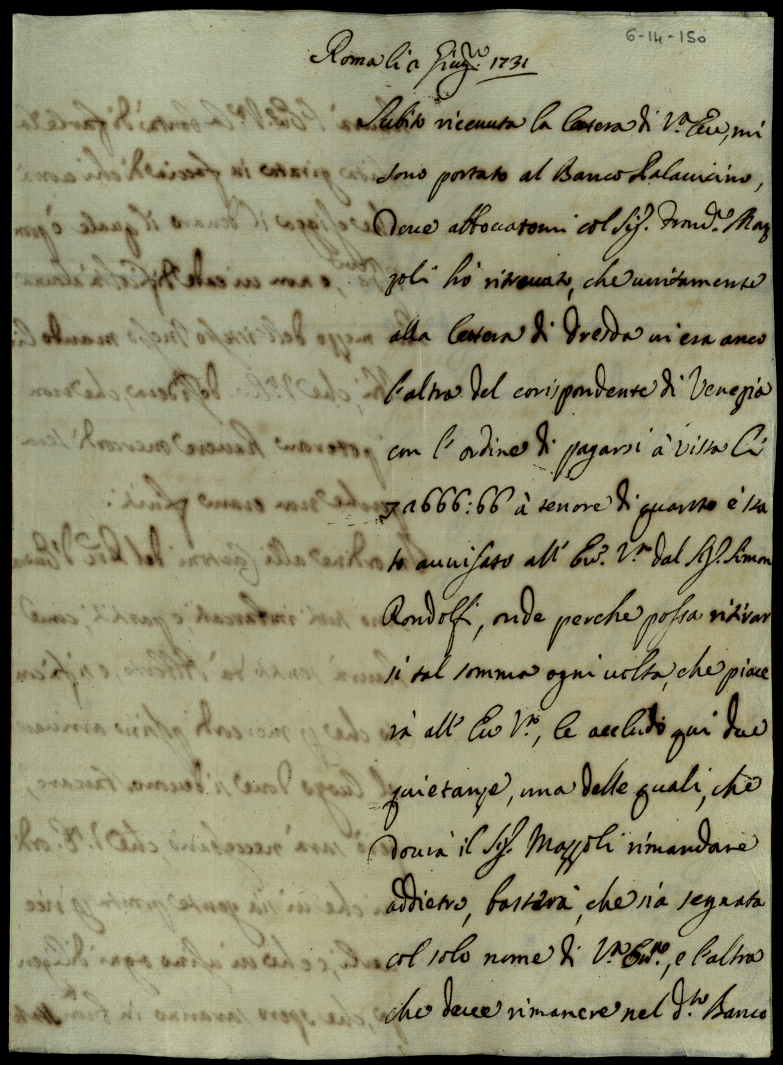 6-14-150
Roma li 2 Giug.º 1731
Subito riceuuta la lettera di V.ª Em., mi
sono portato al Banco Palauicino,
doue abboccatomi col Sig.
zoli hó ritrouato, che unitamente
alla lettera di Dresda ui era anco
l'altra del corispondente di Venezia
con l'ordine di pagarsi à uista li
1666:66 à tenore di quanto è sta
to auuisato all' Em.ª V.ª dal Sig. Simon
Rondolfi, onde perche possa ritirar
si tal somma ogni uolta, che piace
rà all' Em V.ª, le accludo qui due
quietanze, una delle quali, che
dourà il Sig. Mazzoli rimandare
addietro, basterà, che sia segnata
col solo nome di V.ª Em.ª, e l'altra
che deue rimanere nel d.to Banco